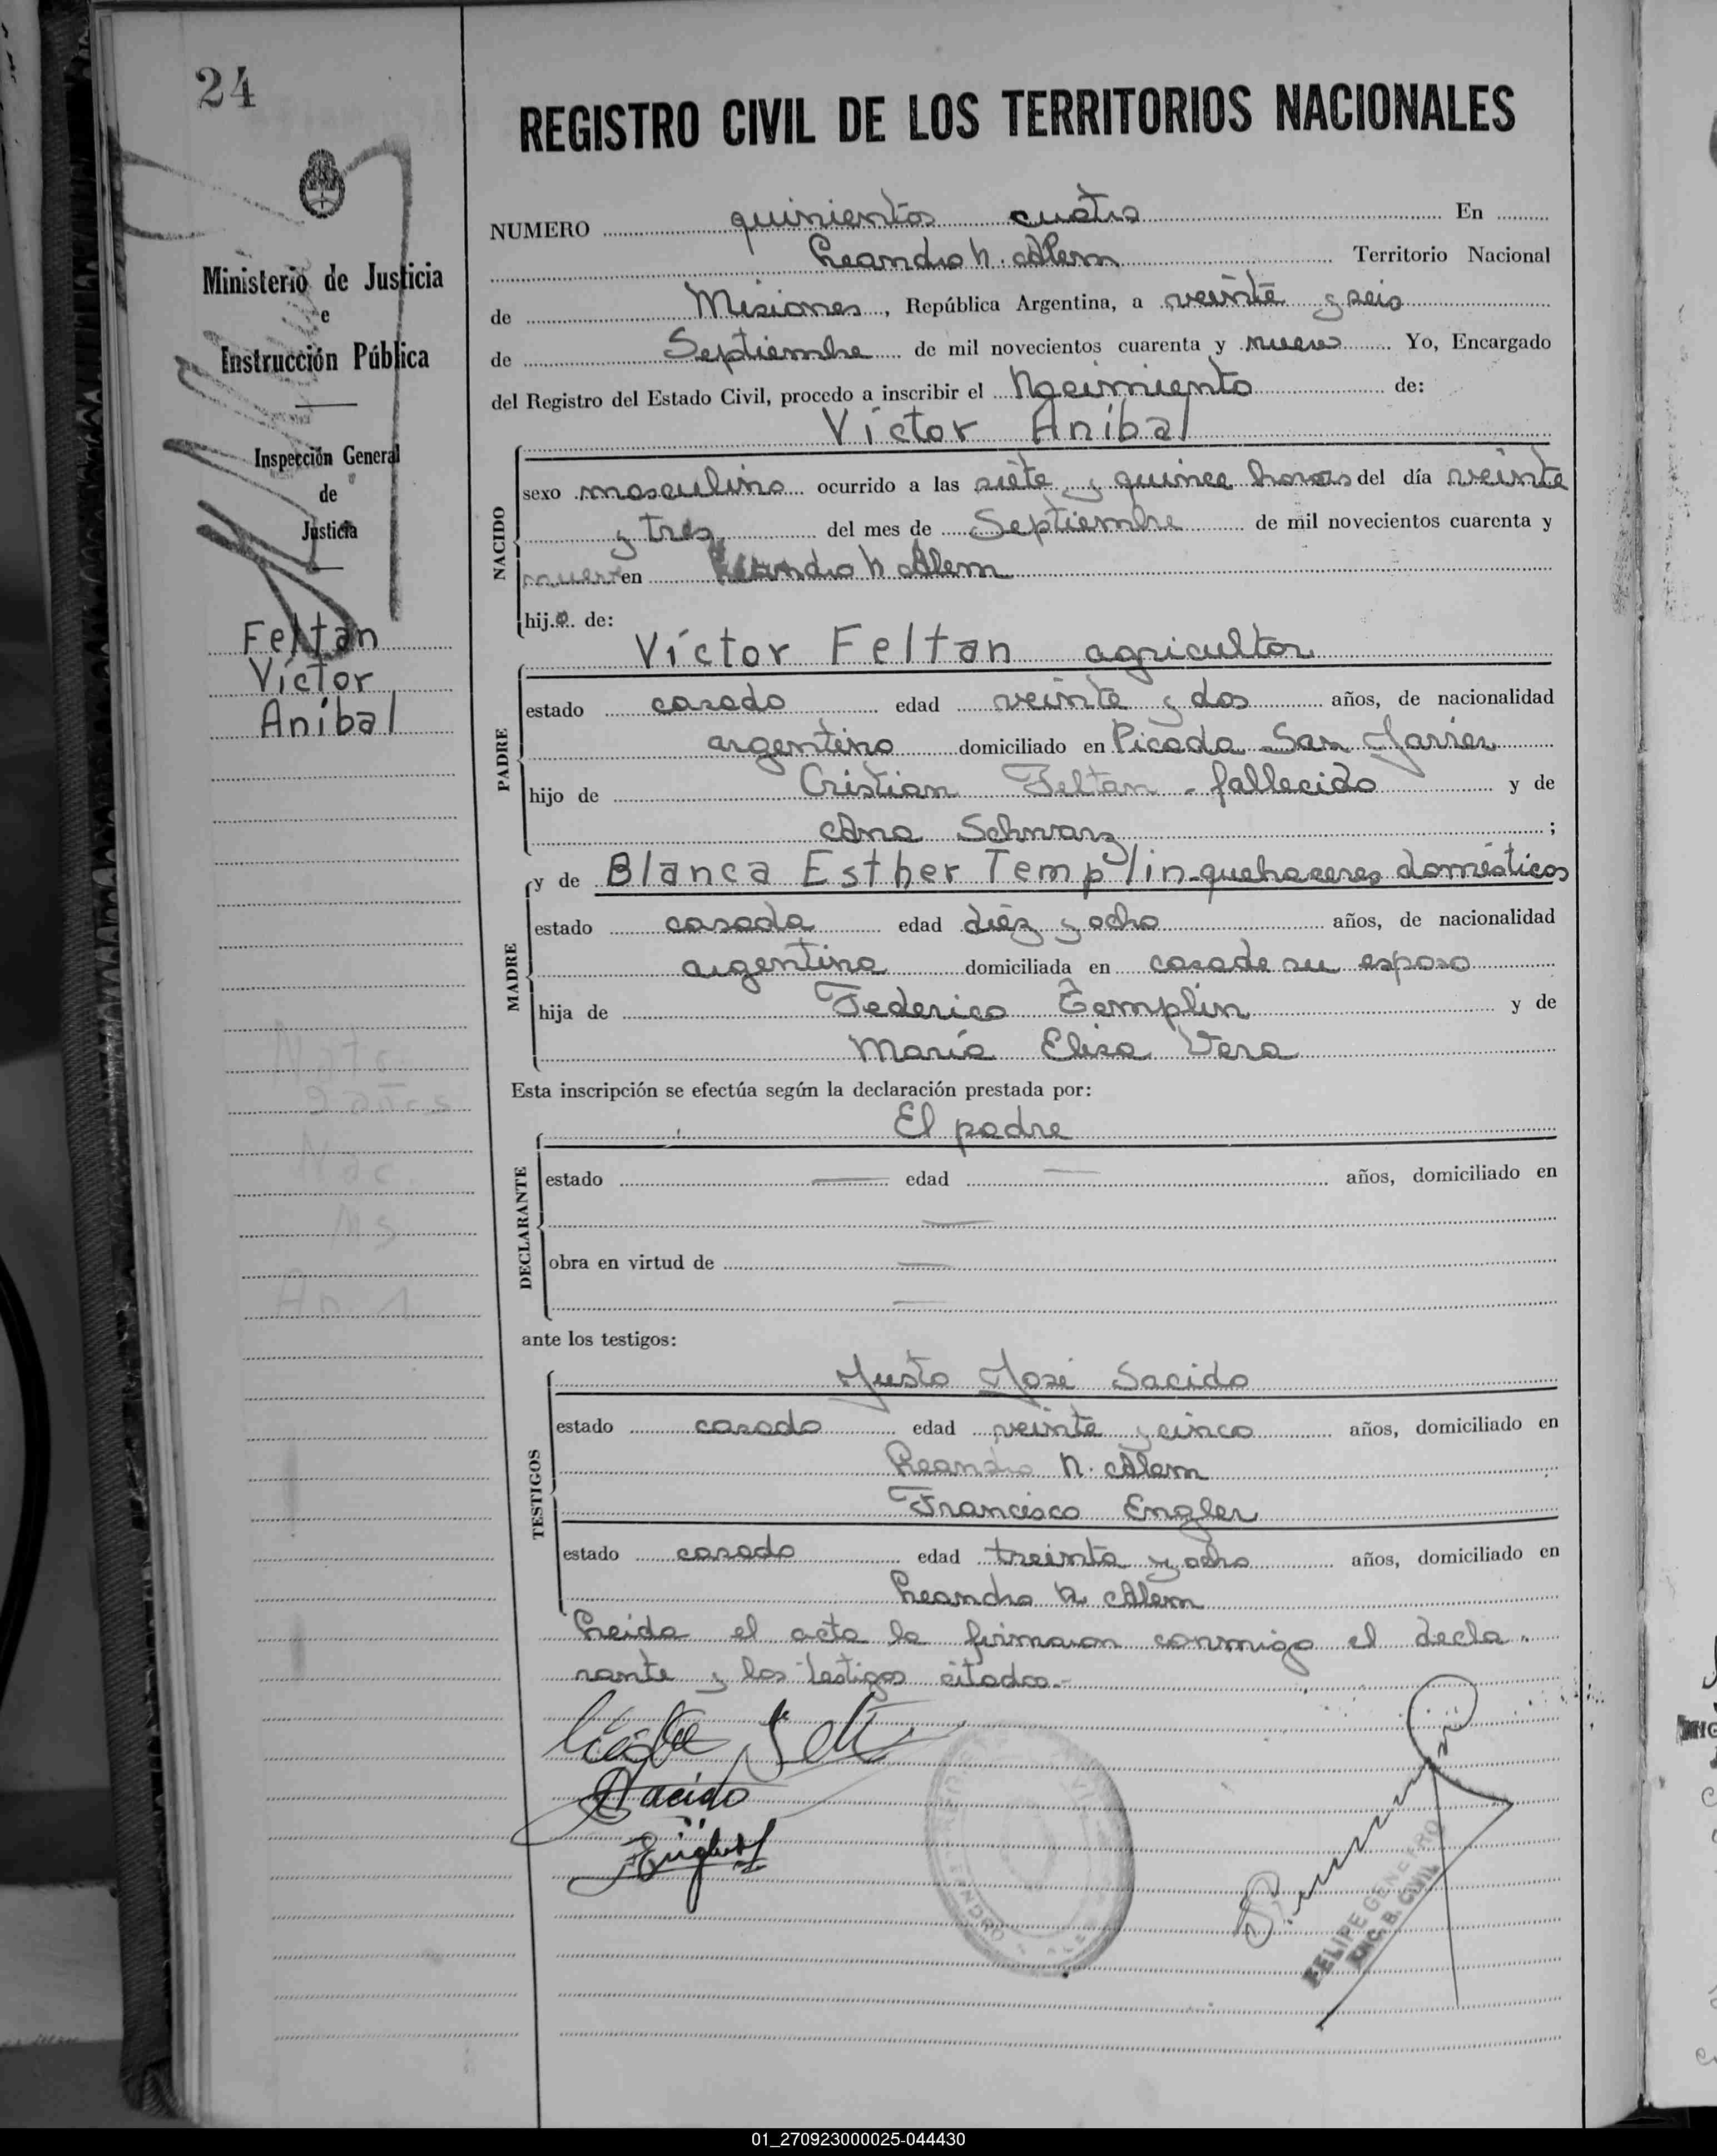 24
REGISTRO CIVIL DE LOS TERRITORIOS NACIONALES
Ministerio de Justicia
e
Instrucción Pública
Inspección General
de
Justicia
Feltan
Víctor
Aníbal
NUMERO quinientos cuatro En
Leandro N. Alem Territorio Nacional
de Misiones, República Argentina, a veinte y seis
de Septiembre de mil novecientos cuarenta y nueve Yo, Encargado
del Registro del Estado Civil, procedo a inscribir el Nacimiento de:
Víctor Aníbal
NACIDO
sexo masculino ocurrido a las siete y quince horas del día veinte
y tres del mes de Septiembre de mil novecientos cuarenta y
nueve en Leandro N Alem
hijo de:
PADRE
Víctor Feltan agricultor
estado casado edad veinte y dos años, de nacionalidad
argentino domiciliado en Picada San Javier
hijo de Cristian Feltan - fallecido y de
Ana Schwarz ;
MADRE
y de Blanca Esther Templin-quehaceres domésticos
estado casada edad diéz y ocho años, de nacionalidad
argentina domiciliada en casa de su esposo
hija de Federico Templin y de
María Elisa Vera
Esta inscripción se efectúa según la declaración prestada por:
El padre
DECLARANTE
estado — edad — años, domiciliado en
—
obra en virtud de —
—
ante los testigos:
TESTIGOS
Justo José Sacido
estado casado edad veinte y cinco años, domiciliado en
Leandro N. Alem
Francisco Engler
estado casado edad treinta y ocho años, domiciliado en
Leandro N. Alem
Leida el acta la firmaron conmigo el decla-
rante y los testigos citados.-
Sacido
FELIPE GENEIRO
ENC. R. CIVIL
Nata
Nac.
Ms
01_270923000025-044430